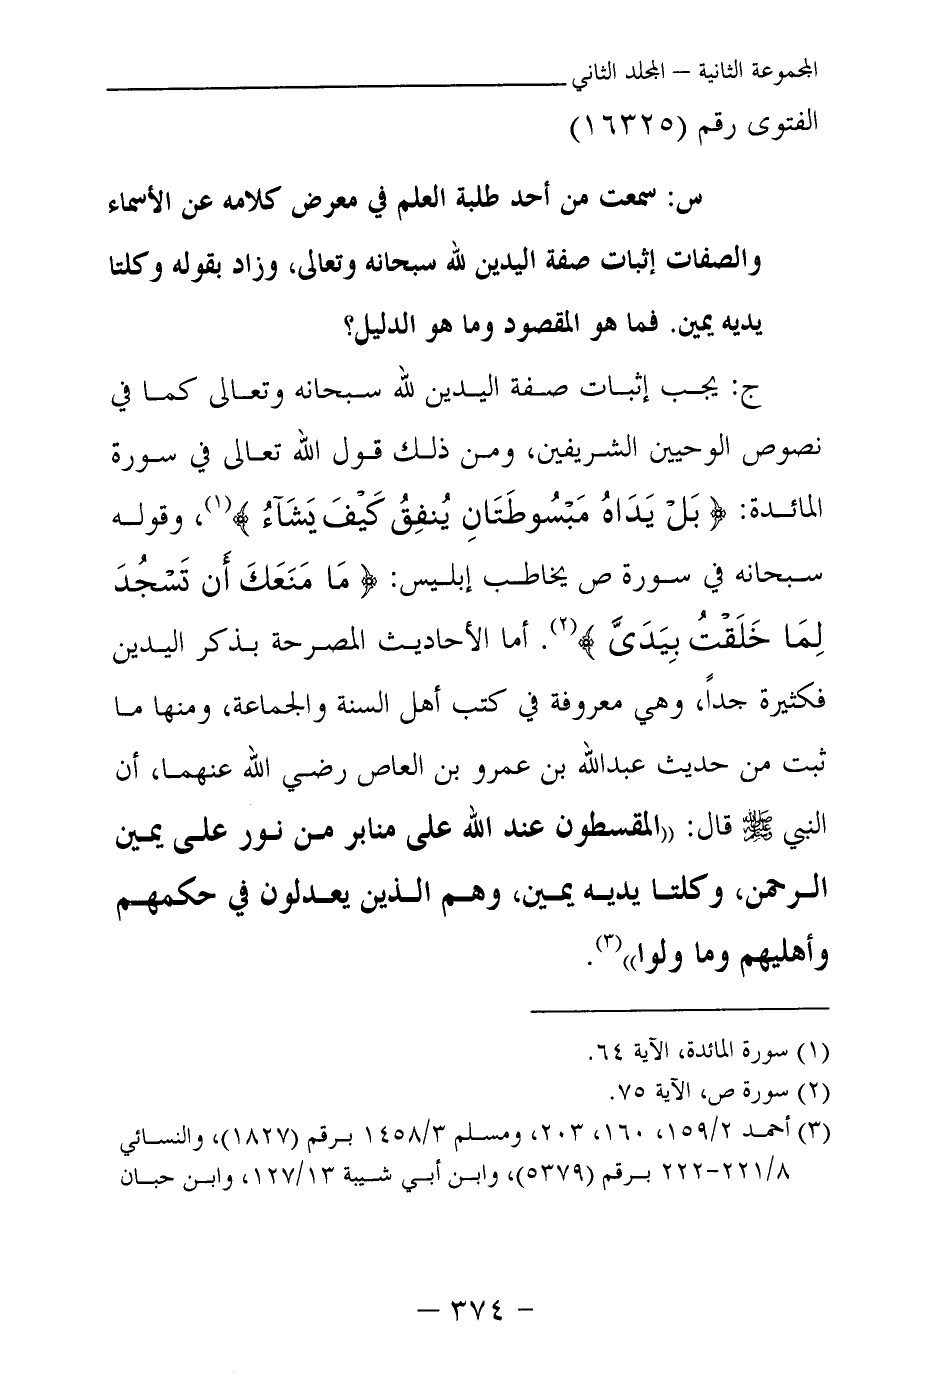 المجموعة الثانية – المجلد الثاني
الفتوى رقم (١٦٣٢٥)
س: سمعت من أحد طلبة العلم في معرض كلامه عن الأسماء
والصفات إثبات صفة اليدين لله سبحانه وتعالى، وزاد بقوله وكلتا
يديه يمين. فما هو المقصود وما هو الدليل؟
ج: يجب إثبات صفة اليدين لله سبحانه وتعالى كما في
نصوص الوحيين الشريفين، ومن ذلك قول الله تعالى في سورة
المائدة: ﴿ بَلْ يَدَاهُ مَبْسُوطَتَانِ يُنفِقُ كَيْفَ يَشَآءُ ﴾(١)، وقوله
سبحانه في سورة ص يخاطب إبليس: ﴿ مَا مَنَعَكَ أَن تَسْجُدَ
لِمَا خَلَقْتُ بِيَدَىَّ ﴾(٢). أما الأحاديث المصرحة بذكر اليدين
فكثيرة جداً، وهي معروفة في كتب أهل السنة والجماعة، ومنها ما
ثبت من حديث عبدالله بن عمرو بن العاص رضي الله عنهما، أن
النبي ﷺ قال: ((المقسطون عند الله على منابر من نور على يمين
الرحمن، وكلتا يديه يمين، وهم الذين يعدلون في حكمهم
وأهليهم وما ولوا))(٣).
(١) سورة المائدة، الآية ٦٤.
(٢) سورة ص، الآية ٧٥.
(٣) أحمد ١٥٩/٢، ١٦٠، ٢٠٣، ومسلم ١٤٥٨/٣ برقم (١٨٢٧)، والنسائي
٢٢١/٨-٢٢٢ برقم (٥٣٧٩)، وابن أبي شيبة ١٢٧/١٣، وابن حبان
– ٣٧٤ –